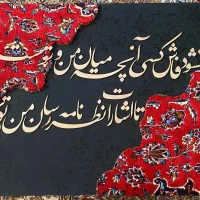 نشود فاش کسی آنچه میان من و توست
تا اشارات نظر نامه رسان من و توست